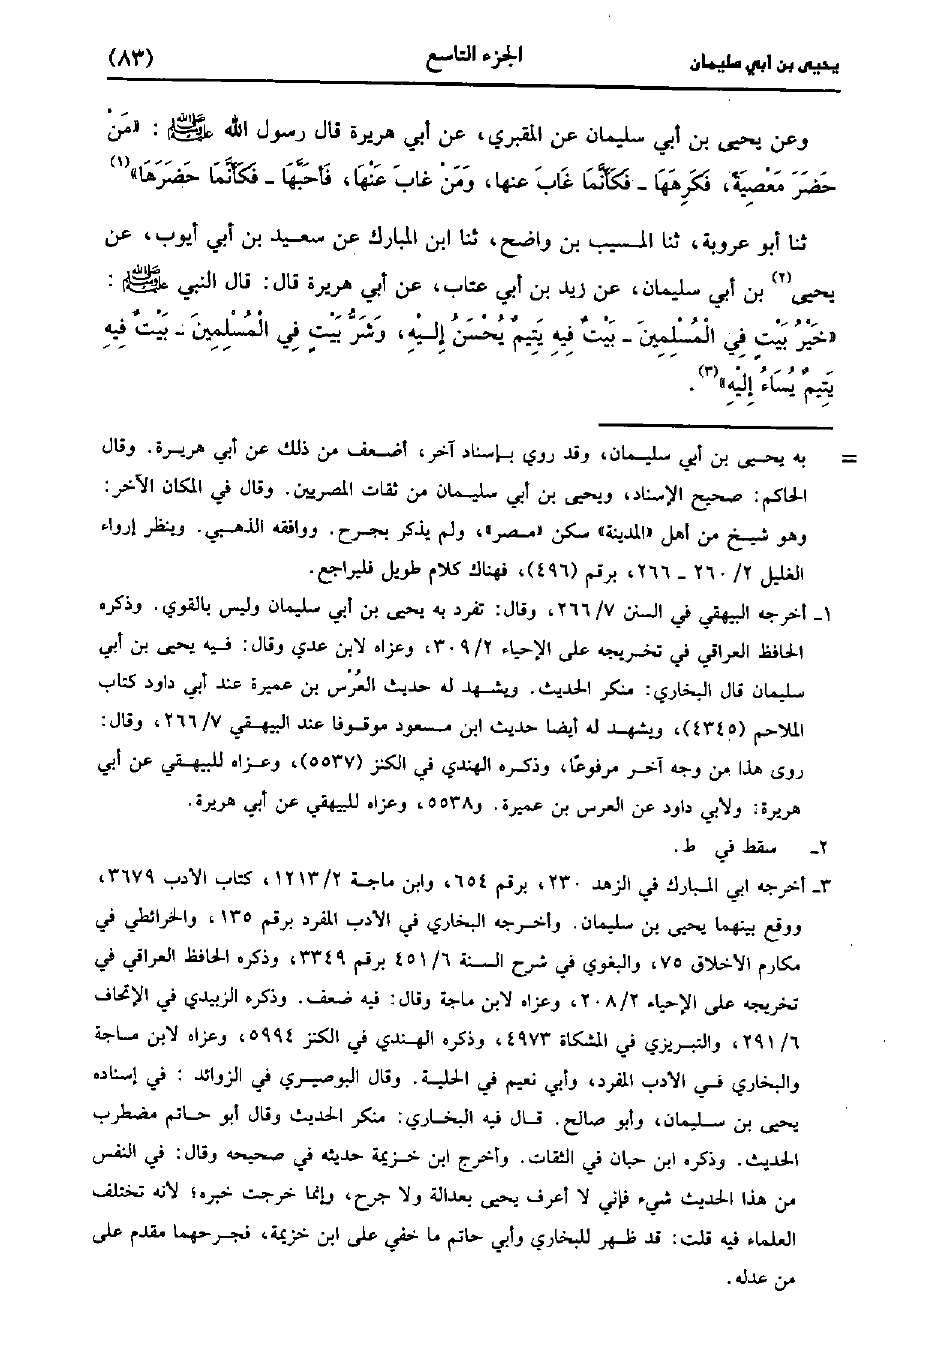 يحيى بن أبي سليمان الجزء التاسع (٨٣)
وعن يحيى بن أبي سليمان عن المقبري، عن أبي هريرة قال رسول الله ﷺ : «مَنْ
حَضَرَ مَعْصِيَةً، فَكَرِهَهَا ـ فَكَأَنَّمَا غَابَ عنها، ومَنْ غابَ عَنْهَا، فَأَحبَّهَا ـ فَكَأَنَّمَا حَضَرَهَا»(١)
ثنا أبو عروبة، ثنا المسيب بن واضح، ثنا ابن المبارك عن سعيد بن أبي أيوب، عن
يحيى(٢) بن أبي سليمان، عن زيد بن أبي عتاب، عن أبي هريرة قال: قال النبي ﷺ :
«خَيْرُ بَيْتٍ فِي الْمُسْلِمِينَ ـ بَيْتٌ فِيهِ يَتِيمٌ يُحْسَنُ إِلَيْهِ، وَشَرُّ بَيْتٍ فِي الْمُسْلِمِينَ ـ بَيْتٌ فِيهِ
يَتِيمٌ يُسَاءُ إِلَيْهِ»(٣) .
= به يحيى بن أبي سليمان، وقد روي بإسناد آخر، أضعف من ذلك عن أبي هريرة. وقال
الحاكم: صحيح الإسناد، ويحيى بن أبي سليمان من ثقات المصريين. وقال في المكان الآخر:
وهو شيخ من أهل «المدينة» سكن «مصر»، ولم يذكر بجرح. ووافقه الذهبي. وينظر إرواء
الغليل ٢/ ٢٦٠ ـ ٢٦٦، برقم (٤٩٦)، فهناك كلام طويل فليراجع.
١ـ أخرجه البيهقي في السنن ٢٦٦/٧، وقال: تفرد به يحيى بن أبي سليمان وليس بالقوي. وذكره
الحافظ العراقي في تخريجه على الإحياء ٣٠٩/٢، وعزاه لابن عدي وقال: فيه يحيى بن أبي
سليمان قال البخاري: منكر الحديث. ويشهد له حديث العُرْس بن عميرة عند أبي داود كتاب
الملاحم (٤٣٤٥)، ويشهد له أيضا حديث ابن مسعود موقوفا عند البيهقي ٢٦٦/٧، وقال:
روى هذا من وجه آخر مرفوعًا، وذكره الهندي في الكنز (٥٥٣٧)، وعزاه للبيهقي عن أبي
هريرة: ولابي داود عن العرس بن عميرة. و٥٥٣٨، وعزاه للبيهقي عن أبي هريرة.
٢ـ سقط في ط.
٣ـ أخرجه ابي المبارك في الزهد ٢٣٠، برقم ٦٥٤، وابن ماجة ١٢١٣/٢، كتاب الأدب ٣٦٧٩،
ووقع بينهما يحيى بن سليمان. وأخرجه البخاري في الأدب المفرد برقم ١٣٥، والخرائطي في
مكارم الأخلاق ٧٥، والبغوي في شرح السنة ٤٥١/٦ برقم ٣٣٤٩، وذكره الحافظ العراقي في
تخريجه على الإحياء ٢٠٨/٢، وعزاه لابن ماجة وقال: فيه ضعف. وذكره الزبيدي في الإتحاف
٢٩١/٦، والتبريزي في المشكاة ٤٩٧٣، وذكره الهندي في الكنز ٥٩٩٤، وعزاه لابن ماجة
والبخاري في الأدب المفرد، وأبي نعيم في الحلية. وقال البوصيري في الزوائد : في إسناده
يحيى بن سليمان، وأبو صالح. قال فيه البخاري: منكر الحديث وقال أبو حاتم مضطرب
الحديث. وذكره ابن حبان في الثقات. وأخرج ابن خزيمة حديثه في صحيحه وقال: في النفس
من هذا الحديث شيء فإني لا أعرف يحيى بعدالة ولا جرح، وإنما خرجت خبره؛ لأنه تختلف
العلماء فيه قلت: قد ظهر للبخاري وأبي حاتم ما خفي على ابن خزيمة، فجرحهما مقدم على
من عدله.